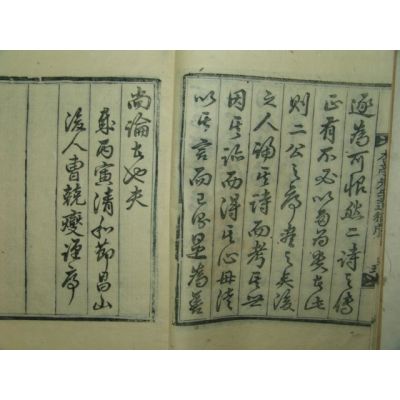 遂為可恨然二詩之傳
正有不必以多為貴此
則二公之序盡之矣後
之人誦其詩而考其世
因其論而得其心毋徒
以其言而已則是為善
尚論古也夫
歲丙寅清和節昌山
後人曹兢燮謹序